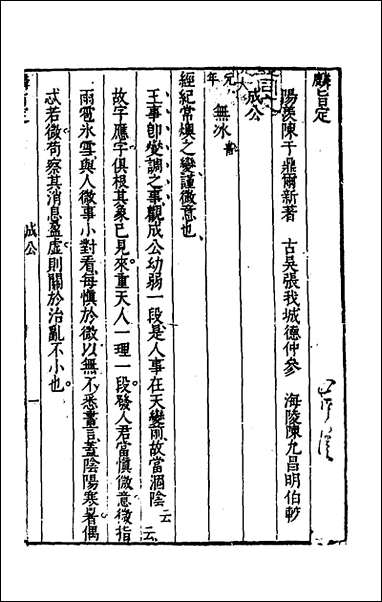 麟旨定
陽羨陳于鼎爾新著　古吳張我城德仲參　海陵陳九昌明伯較
成公
元年
無冰
經紀常燠之變謹微意也
王事卽燮調之事觀成公幼弱一段是人事在天變前故當涸陰云云
故字應字俱根其象已見來重天人一理一段發人君當愼微意微指
雨雹冰雪與人微事小對看每愼於微以無不悉畫言蓋陰陽寒暑偶
忒若微苟察其消息盈虛則關於治亂不小也
麟旨定
成公
一